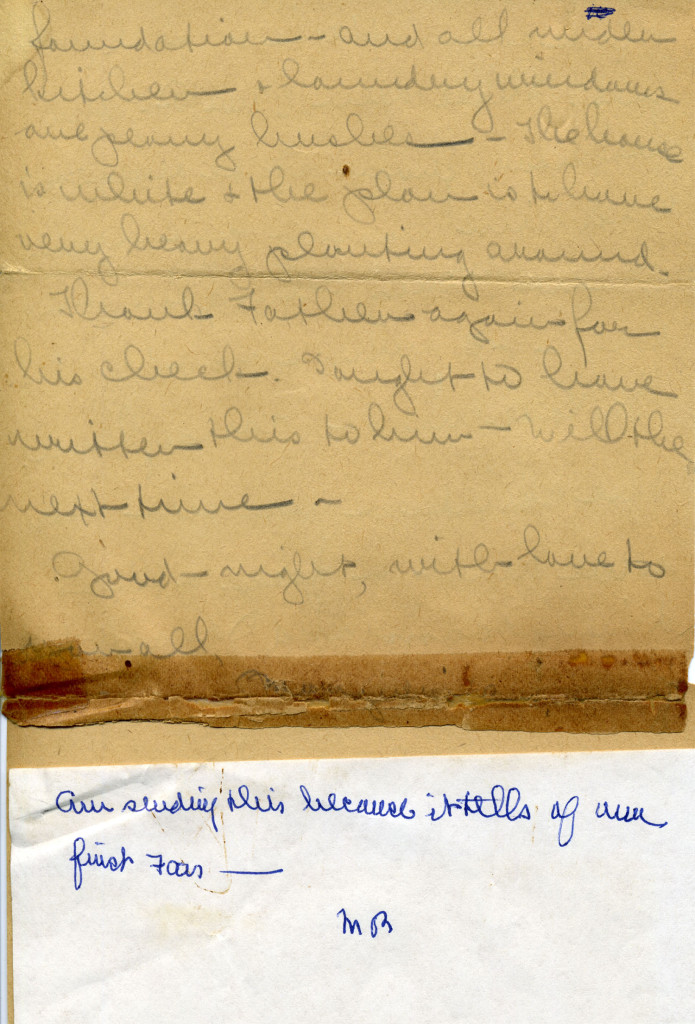 foundation - and all under
kitchen & laundry windows
are peony bushes - The house
is white & the plan is to have
very heavy planting around.
Thank Father again for
his check. I ought to have
written this to him - Will the
next time -
Good-night, with love to
you all
Am sending this because it tells of our
first Fair —
MB